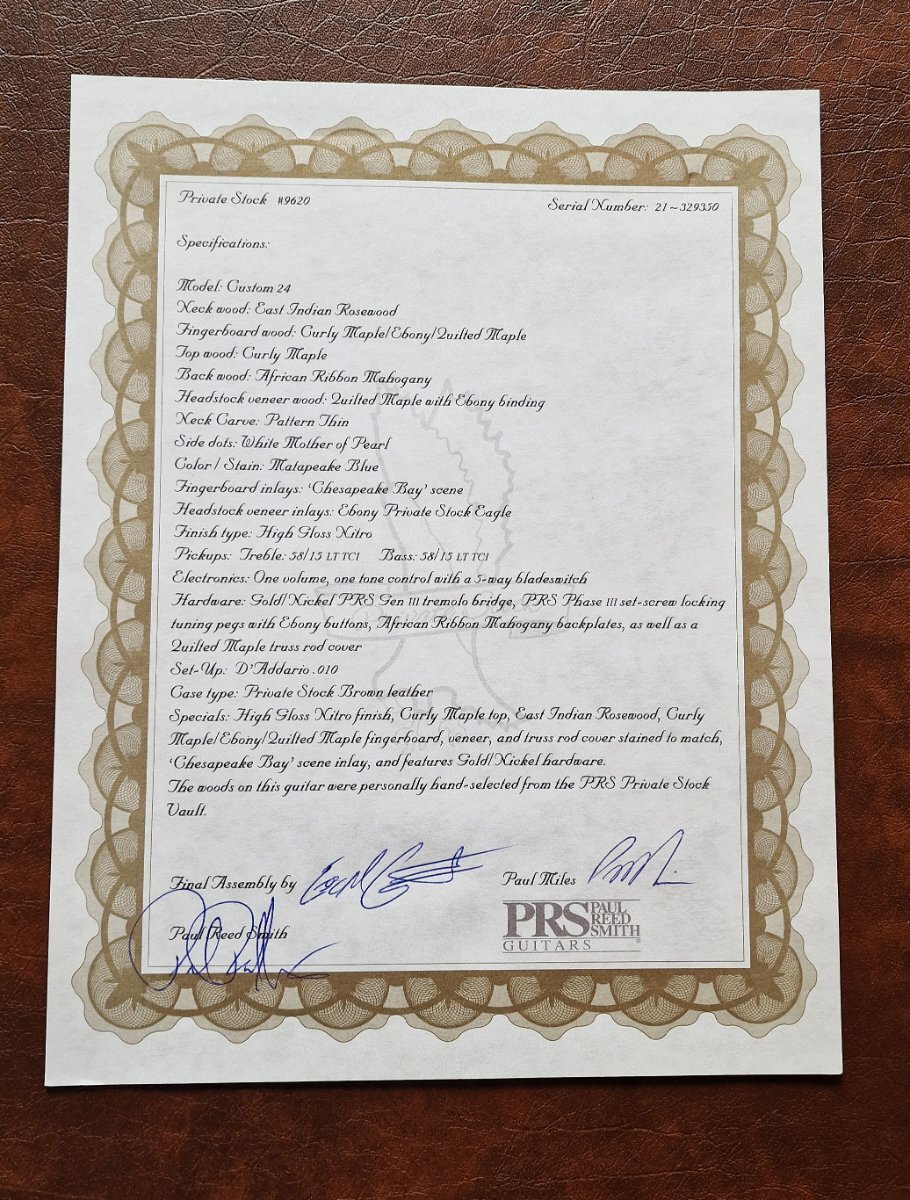 Private Stock #9620
Serial Number: 21-329350
Specifications:
Model: Custom 24
Neck wood: East Indian Rosewood
Fingerboard wood: Curly Maple/Ebony/Quilted Maple
Top wood: Curly Maple
Back wood: African Ribbon Mahogany
Headstock veneer wood: Quilted Maple with Ebony binding
Neck Carve: Pattern Thin
Side dots: White Mother of Pearl
Color / Stain: Matapeake Blue
Fingerboard inlays: 'Chesapeake Bay' scene
Headstock veneer inlays: Ebony Private Stock Eagle
Finish type: High Gloss Nitro
Pickups: Treble: 58/15 LT TCI Bass: 58/15 LT TCI
Electronics: One volume, one tone control with a 5-way bladeswitch
Hardware: Gold/Nickel PRS Gen III tremolo bridge, PRS Phase III set-screw locking
tuning pegs with Ebony buttons, African Ribbon Mahogany backplates, as well as a
Quilted Maple truss rod cover
Set-Up: D'Addario .010
Case type: Private Stock Brown leather
Specials: High Gloss Nitro finish, Curly Maple top, East Indian Rosewood, Curly
Maple/Ebony/Quilted Maple fingerboard, veneer, and truss rod cover stained to match,
'Chesapeake Bay' scene inlay, and features Gold/Nickel hardware.
The woods on this guitar were personally hand-selected from the PRS Private Stock
Vault.
Final Assembly by
Paul Miles
Paul Reed Smith
PRS PAUL REED SMITH
GUITARS